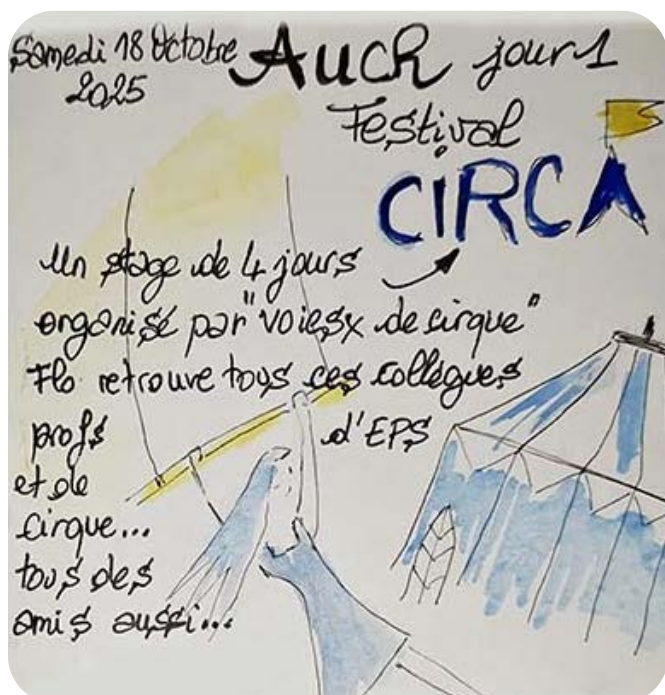 Samedi 18 Octobre
2025
Auch jour 1
Festival
CiRCA
Un stage de 4 jours
organisé par "voiesx de cirque"
Flo retrouve tous ces collègues
profs d'EPS
et de
cirque...
tous des
amis aussi...